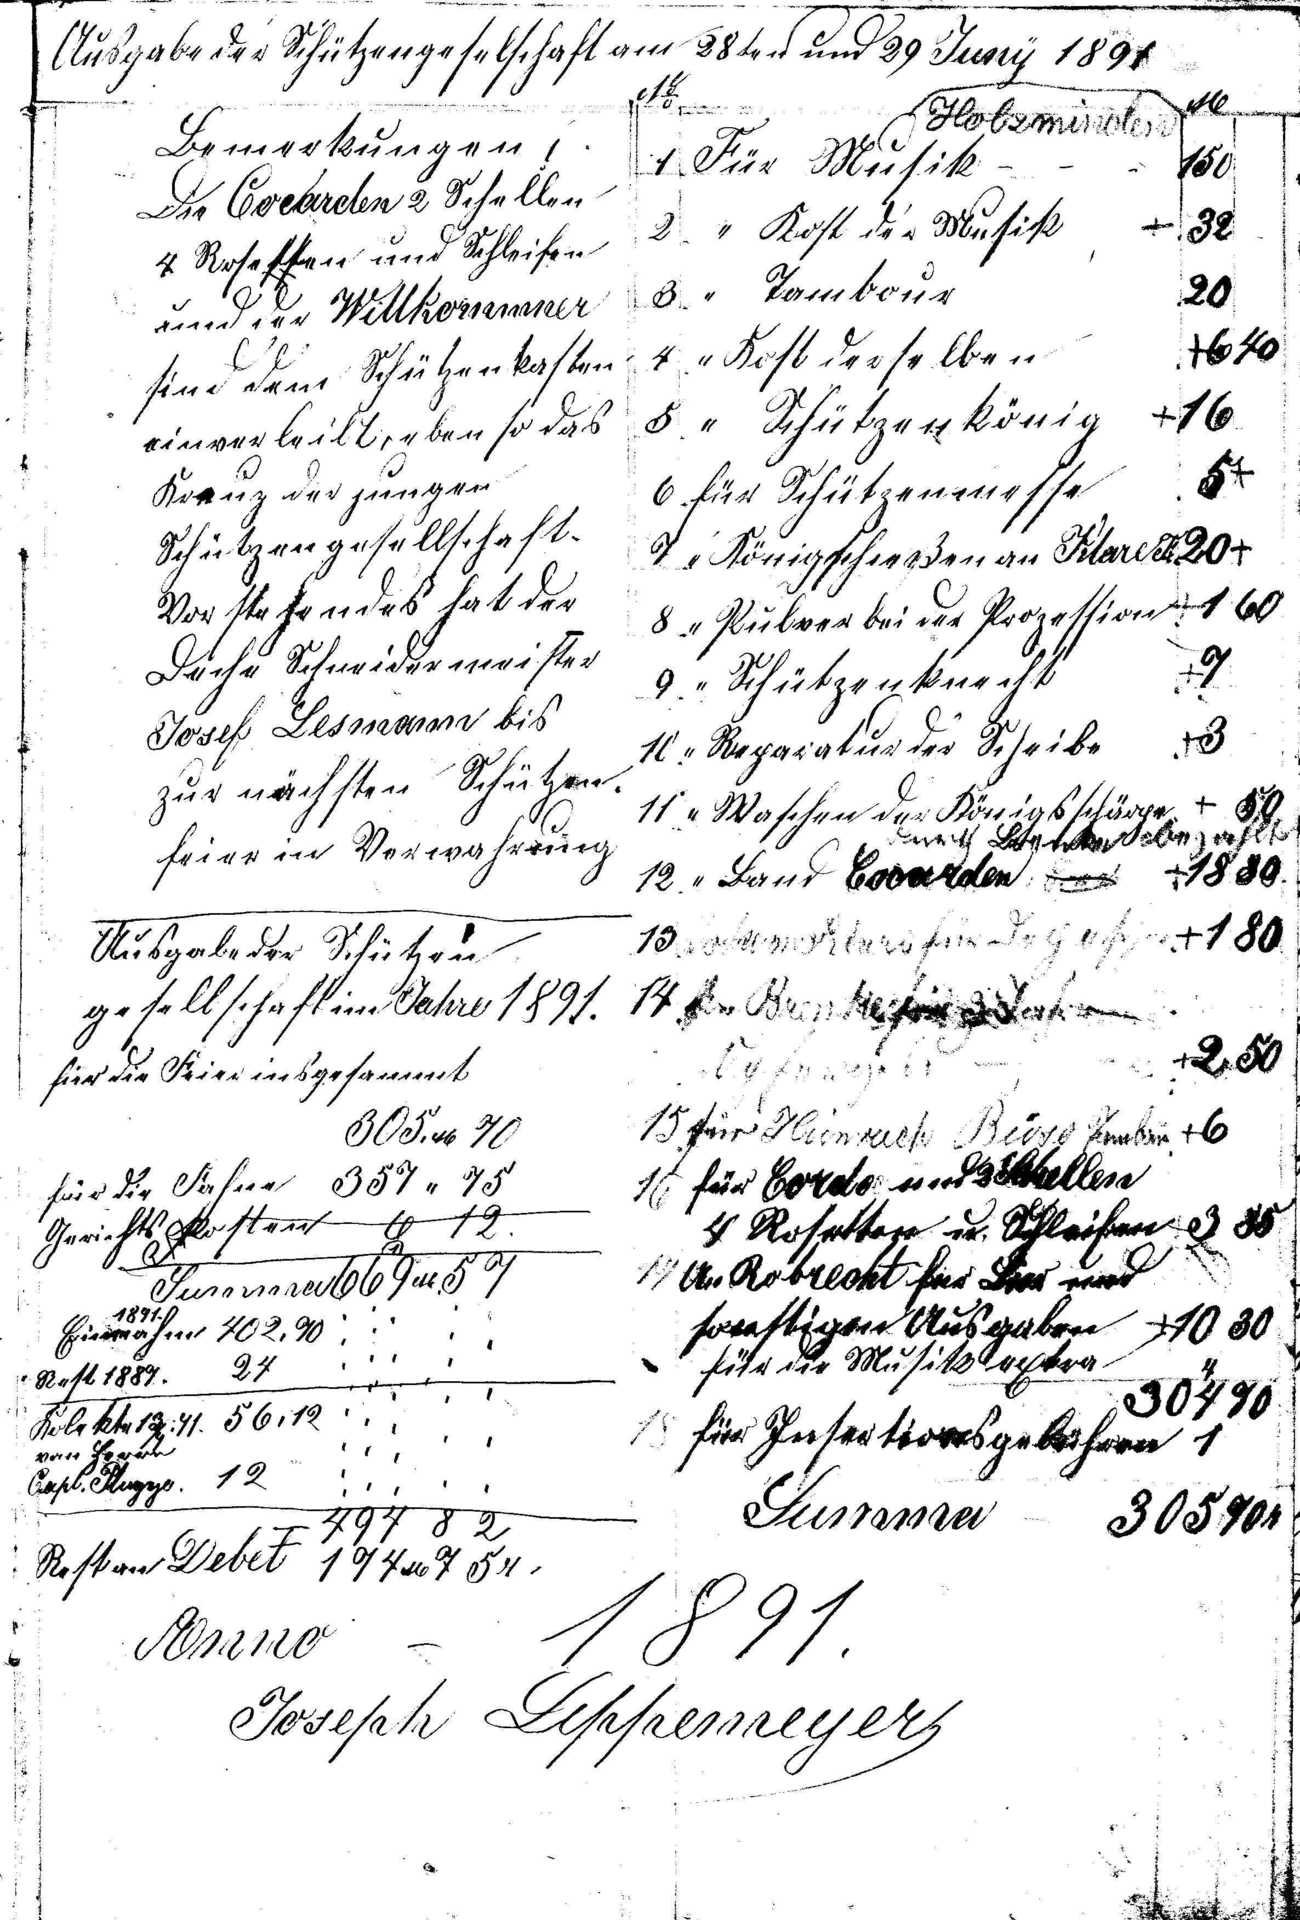 Ausgabe der Schützengeselschaft am 28ten und 29 Juny 1891
Bemerkungen;
Die Cocarden 2 Schellen
4 Rosetten und Schleifen
und der Willkommner
sind dem Schützenkasten
einverleibt, eben so das
Kreuz der jungen
Schützengesellschaft.
Vorstehendes hat der
Deche Schneidermeister
Josef Lesmann bis
zur nächsten Schützen-
feier in Verwahrung
Ausgabe der Schützen
gesellschaft im Jahre 1891.
für die Feier insgesammt
305 M 70
für die Fahne 357 " 75
Gerichts Kosten 6 12.
Summa 669 M 57
1891.
Einnahm 402,90
Rest 1889. 24
Kolekte 56,12
von Herrn
Capl. 12
494 82
Rest an Debet 174 M 75 d.
No M
Holzminden
1 Für Musik - - - 150
2 " Kost der Musik + 32
3 " Tambour 20
4 " Kost derselben +6 40
5 " Schützenkönig +16
6 für Schützenmesse 5+
7 " Königschießen an 20+
8 " Pulver bei der Prozession +1 60
9 " Schützenknecht +7
10 " Reparatur der Scheibe +3
11 " Waschen der Königsschärpe + 50
durch bezahlt
12 " Band Cocarden +18 80
13 für +1 80
14 für 3 Jahr
+2 50
15 für Heinrich +6
16 für und 2 Schellen
4 Rosetten u. Schleifen 3 35
17 An Robrecht für und
sonstigen Ausgaben +10 30
für die Musik extra "
304 70
18 für Insertionsgebühren 1
Summa 305 70 d
Anno - 1891.
Joseph Leppemeyer